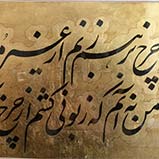 چرخ برهم زنم ار غیر مر
من نه آنم که زبونی کشم از چرخ